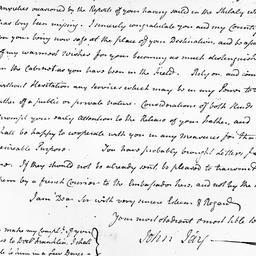 anxieties occasioned by the Reports of your having sailed in the Shelaly wh
has long been missing. I sincerely congratulate you and my Country
on your being now safe at the place of your Destination, and be assured
of my warmest wishes for your becoming as much distinguished
in the Cabinet as you have been in the Field. Rely on and comm
without Hesitation any services which may be in my Power to
either of a public or private nature. Considerations of both Kinds
prompt your early Attention to the Release of your Father, and
shall be happy to cooperate with you in any Measures for that
desireable Purpose. You have probably brought Letters for
me. If they should not be already sent, be pleased to transmit
them by a french Courier to the Embassador here, and not by the
I am Dear Sir with very sincere Esteem & Regard
Your most obedient & most hble
John Jay
make my Compts. if you
to Doctr. Franklin, I shall
write to him in a few Days